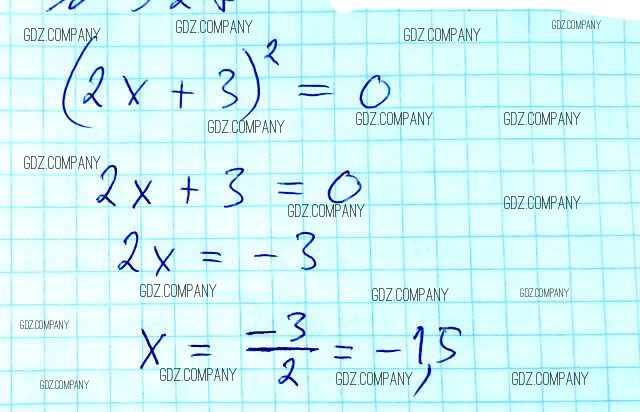 GDZ.COMPANY GDZ.COMPANY GDZ.COMPANY GDZ.COMPANY
(2x + 3)² = 0
GDZ.COMPANY GDZ.COMPANY GDZ.COMPANY
GDZ.COMPANY
2x + 3 = 0
GDZ.COMPANY GDZ.COMPANY
2x = -3
GDZ.COMPANY GDZ.COMPANY GDZ.COMPANY
GDZ.COMPANY
x = -3/2 = -1,5
GDZ.COMPANY GDZ.COMPANY GDZ.COMPANY GDZ.COMPANY